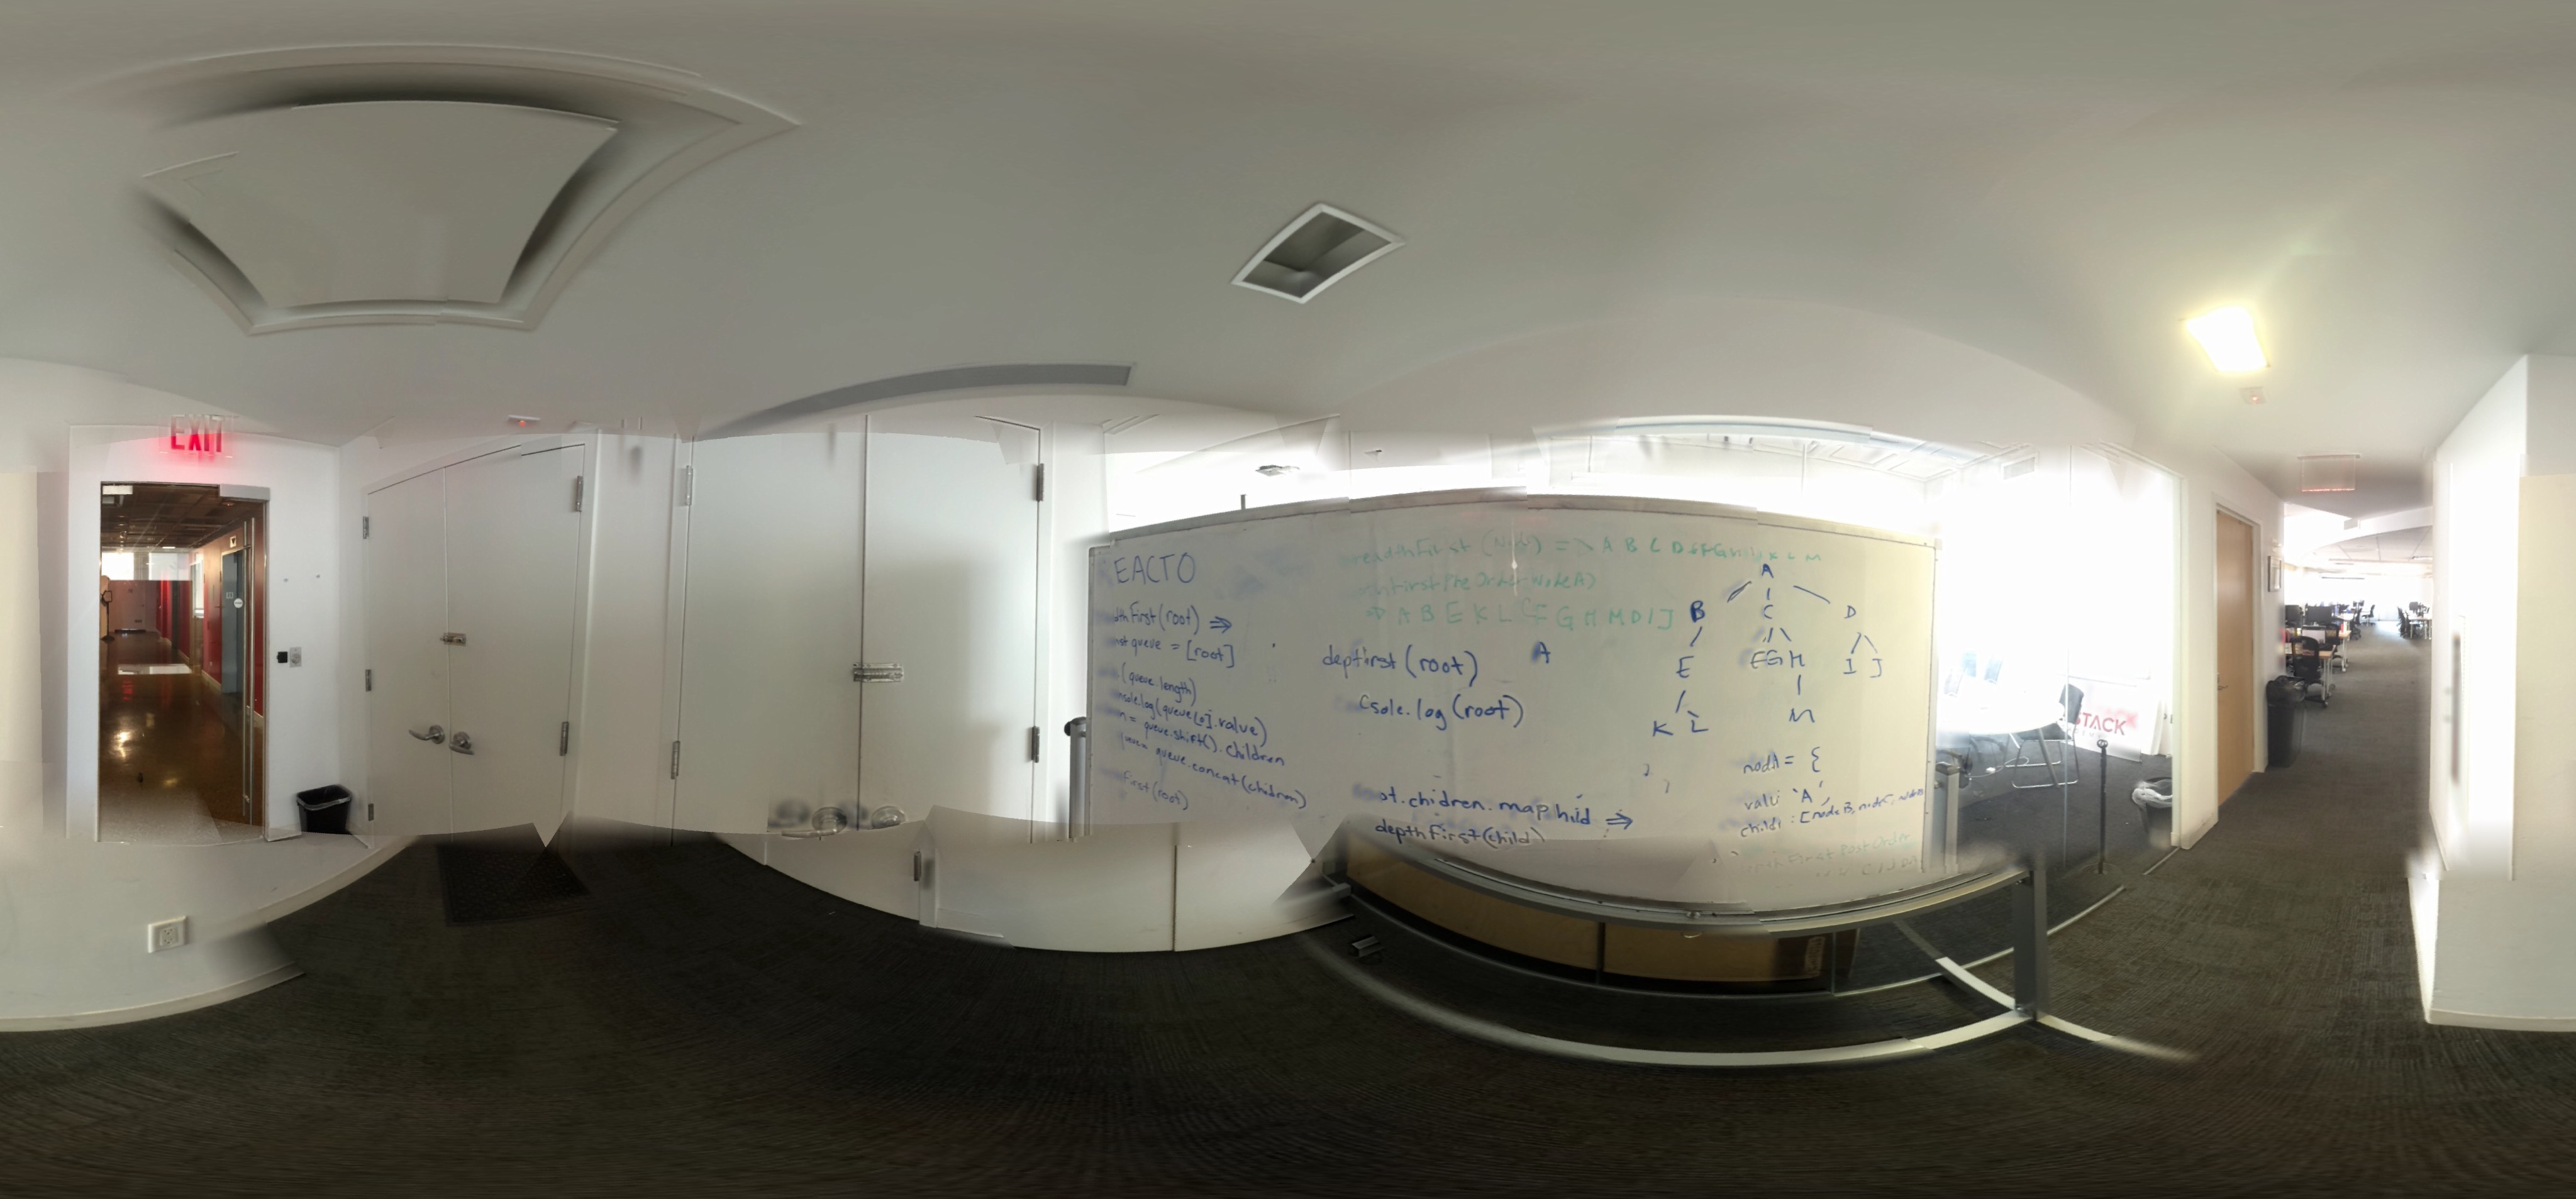 EXIT
EACTO
First (root) ⇒
queue = [root]
(queue.length)
log(queue[0].value)
= queue.shift().children
queue.concat(children)
first(root)
First (Node) => A B C D E F G H I J K L M
A B E K L C F G H M D I J
depfirst (root)
A
Csole.log (root)
ot.chidren.map hild ⇒
depthFirst(child)
A
B C D
E F G H I J
K L M
nodA = {
valu 'A',
child : [node B, node C, node D
First Post Order
STACK